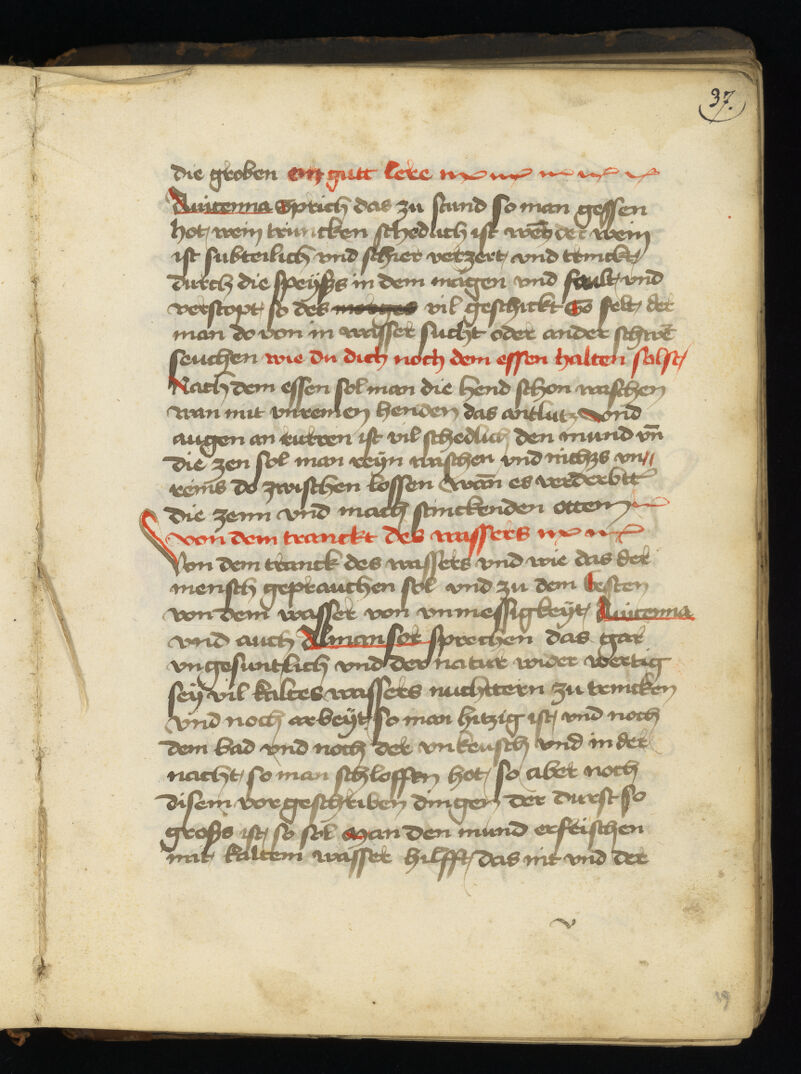 37.
die groben ein gutt lere
Auicenna Sprich das zu stund so man gessen
hot, wein truncken schedlich ist wen der wein
ist subteilich vnd schier verzert, vnd trinckt,
durch die speyß in dem magen vnd fault, vnd
verstopt, so des morges vil geschickt So felt, der
man do von in wasser sucht oder ander schwer
seuchen wie du dich noch dem essen halten solst,
Nach dem essen sol man die hend schon waschen
wan mit vnreinen henden das antlutz vnd
augen an ruren ist vil schedlich den mund vn̄
die zen sol man reyn waschen vnd nichzs vn„
reins do zwischen lossen wan̄ es verderbtt
die zenn vnd mach stinckenden ottem
von dem tranckt des wassers
Von dem tranck des wassers vnd wie das der
mensch geprauchen sol vnd zu dem besten
von dem wasser von vnmessigkeyt, Auicenna
vnd auch Almansor sprechen das gar
vngesuntlich vnd der natur wider wertig
sey vil kaltes wassers nuchttern zu trincken
vnd noch arbeyt, so man hitzig ist, vnd noch
dem bad vnd noch der vnkeusch vnd in der
nacht, so man schlofftn hot, so aber noch
disem vorgeschriben dingen der durst so
groß ist, so sol man den mund erfrischen
mit kaltem wasser hilfft, das nit vnd der
v
19